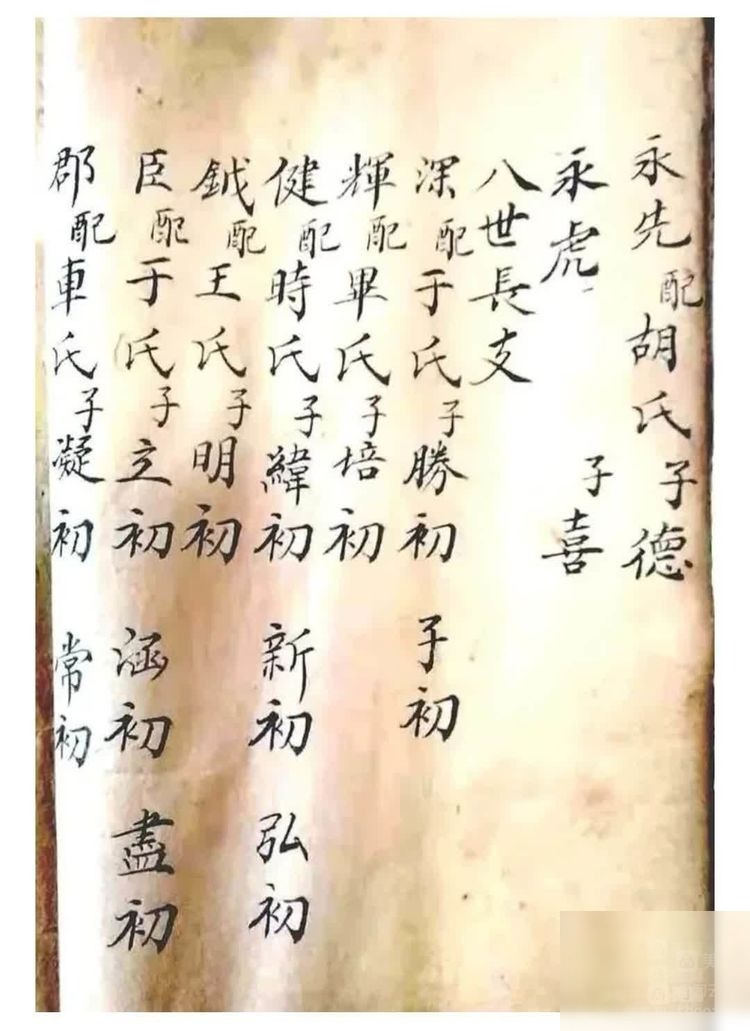 永先配胡氏子德
永虎 子喜
八世長支
深配于氏子勝初 子初
輝配畢氏子培初
健配時氏子緯初 新初 弘初
鉞配王氏子明初
臣配于氏子立初 涵初 盡初
郡配車氏子凝初 常初